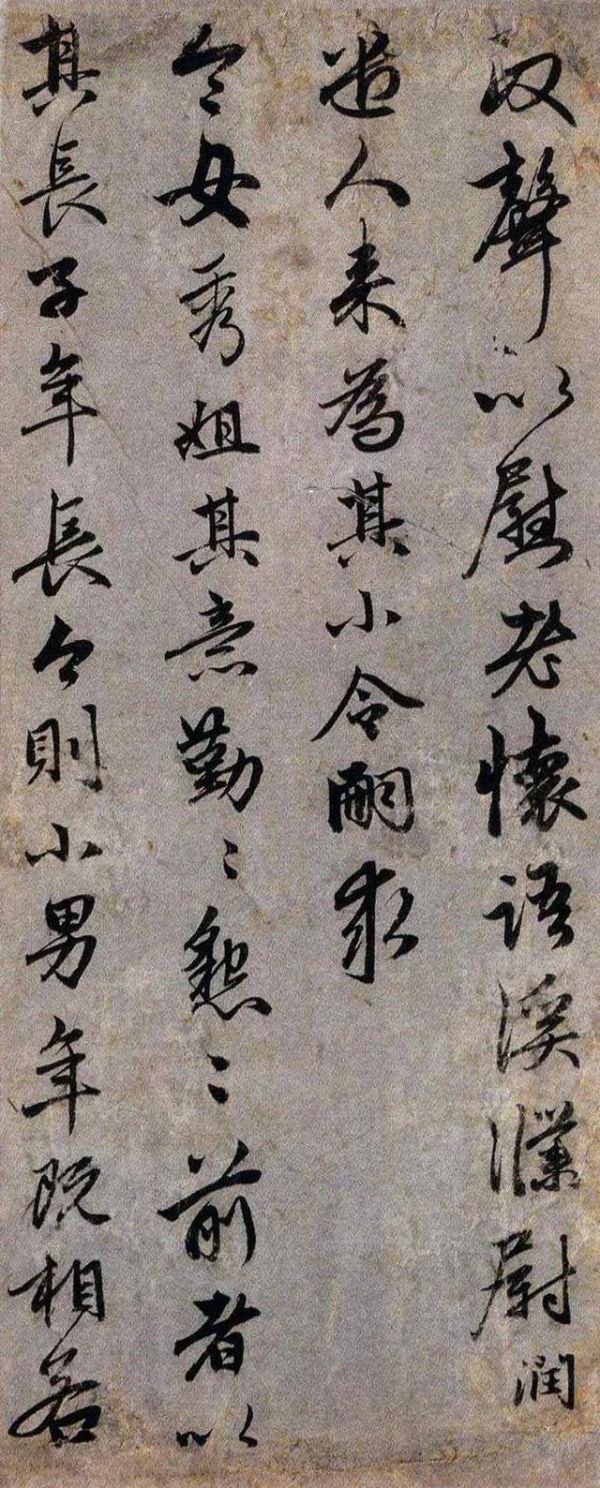 聲以慰老懷語溪濮尉潤
遣人来為其小令嗣求
令女秀姐其意勤〻懇〻前者以
其長子年長今則小男年既相若